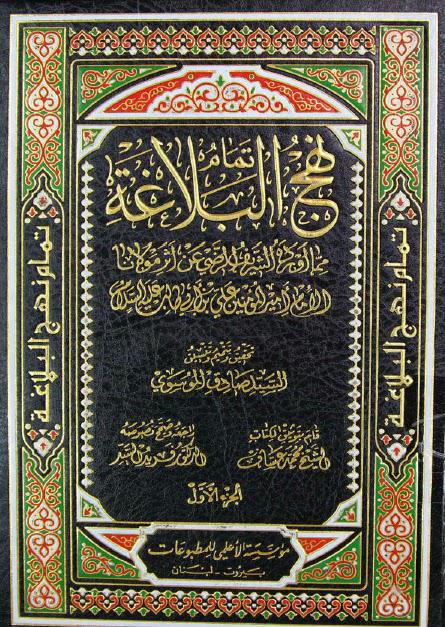 تمام
نهج البلاغة
مما أورده الشريف الرضي عن أثر مولانا
الإمام أمير المؤمنين علي بن أبي طالب عليه السلام
تحقيق وتتميم وتنسيق
السيد صادق الموسوي
قام بتوثيق الكتاب
الشيخ محمد عساف
راجعه وصحح نصوصه
الدكتور فريد السيد
الجزء الأول
مؤسسة الأعلمي للمطبوعات
بيروت . لبنان
تمام نهج البلاغة
تمام نهج البلاغة